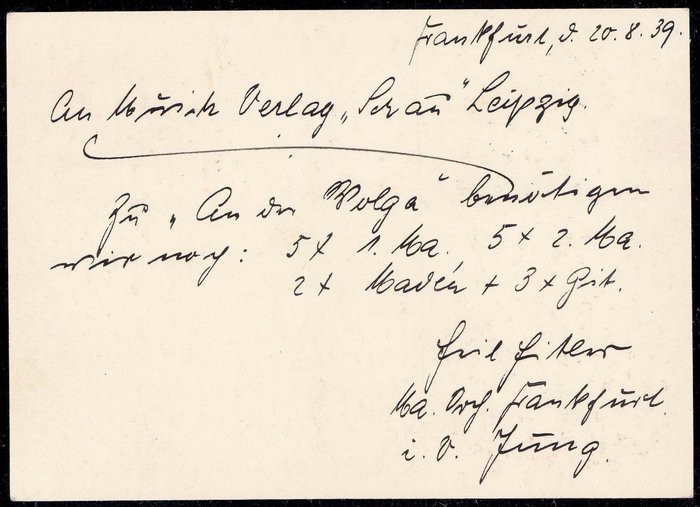 Frankfurt, d. 20.8.39.
An Musik Verlag „Schau" Leipzig.
Zu „An der Wolga" benötigen
wir noch: 5 x 1. Ma., 5 x 2. Ma.
2 x + 3 x Git.
Heil Hitler
Ma. Orch. Frankfurt.
i. V. Jung.